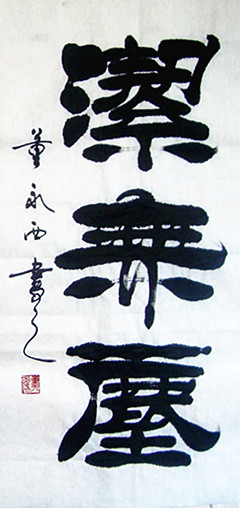 潔無塵
董永西書之